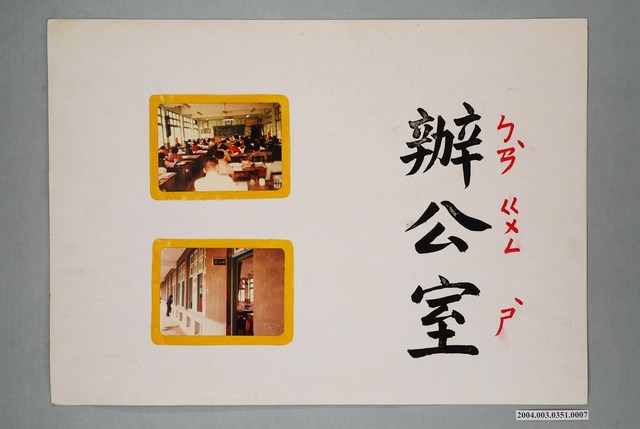 辦公室
ㄅㄢˋ ㄍㄨㄥ ㄕˋ
2004.003.0351.0007